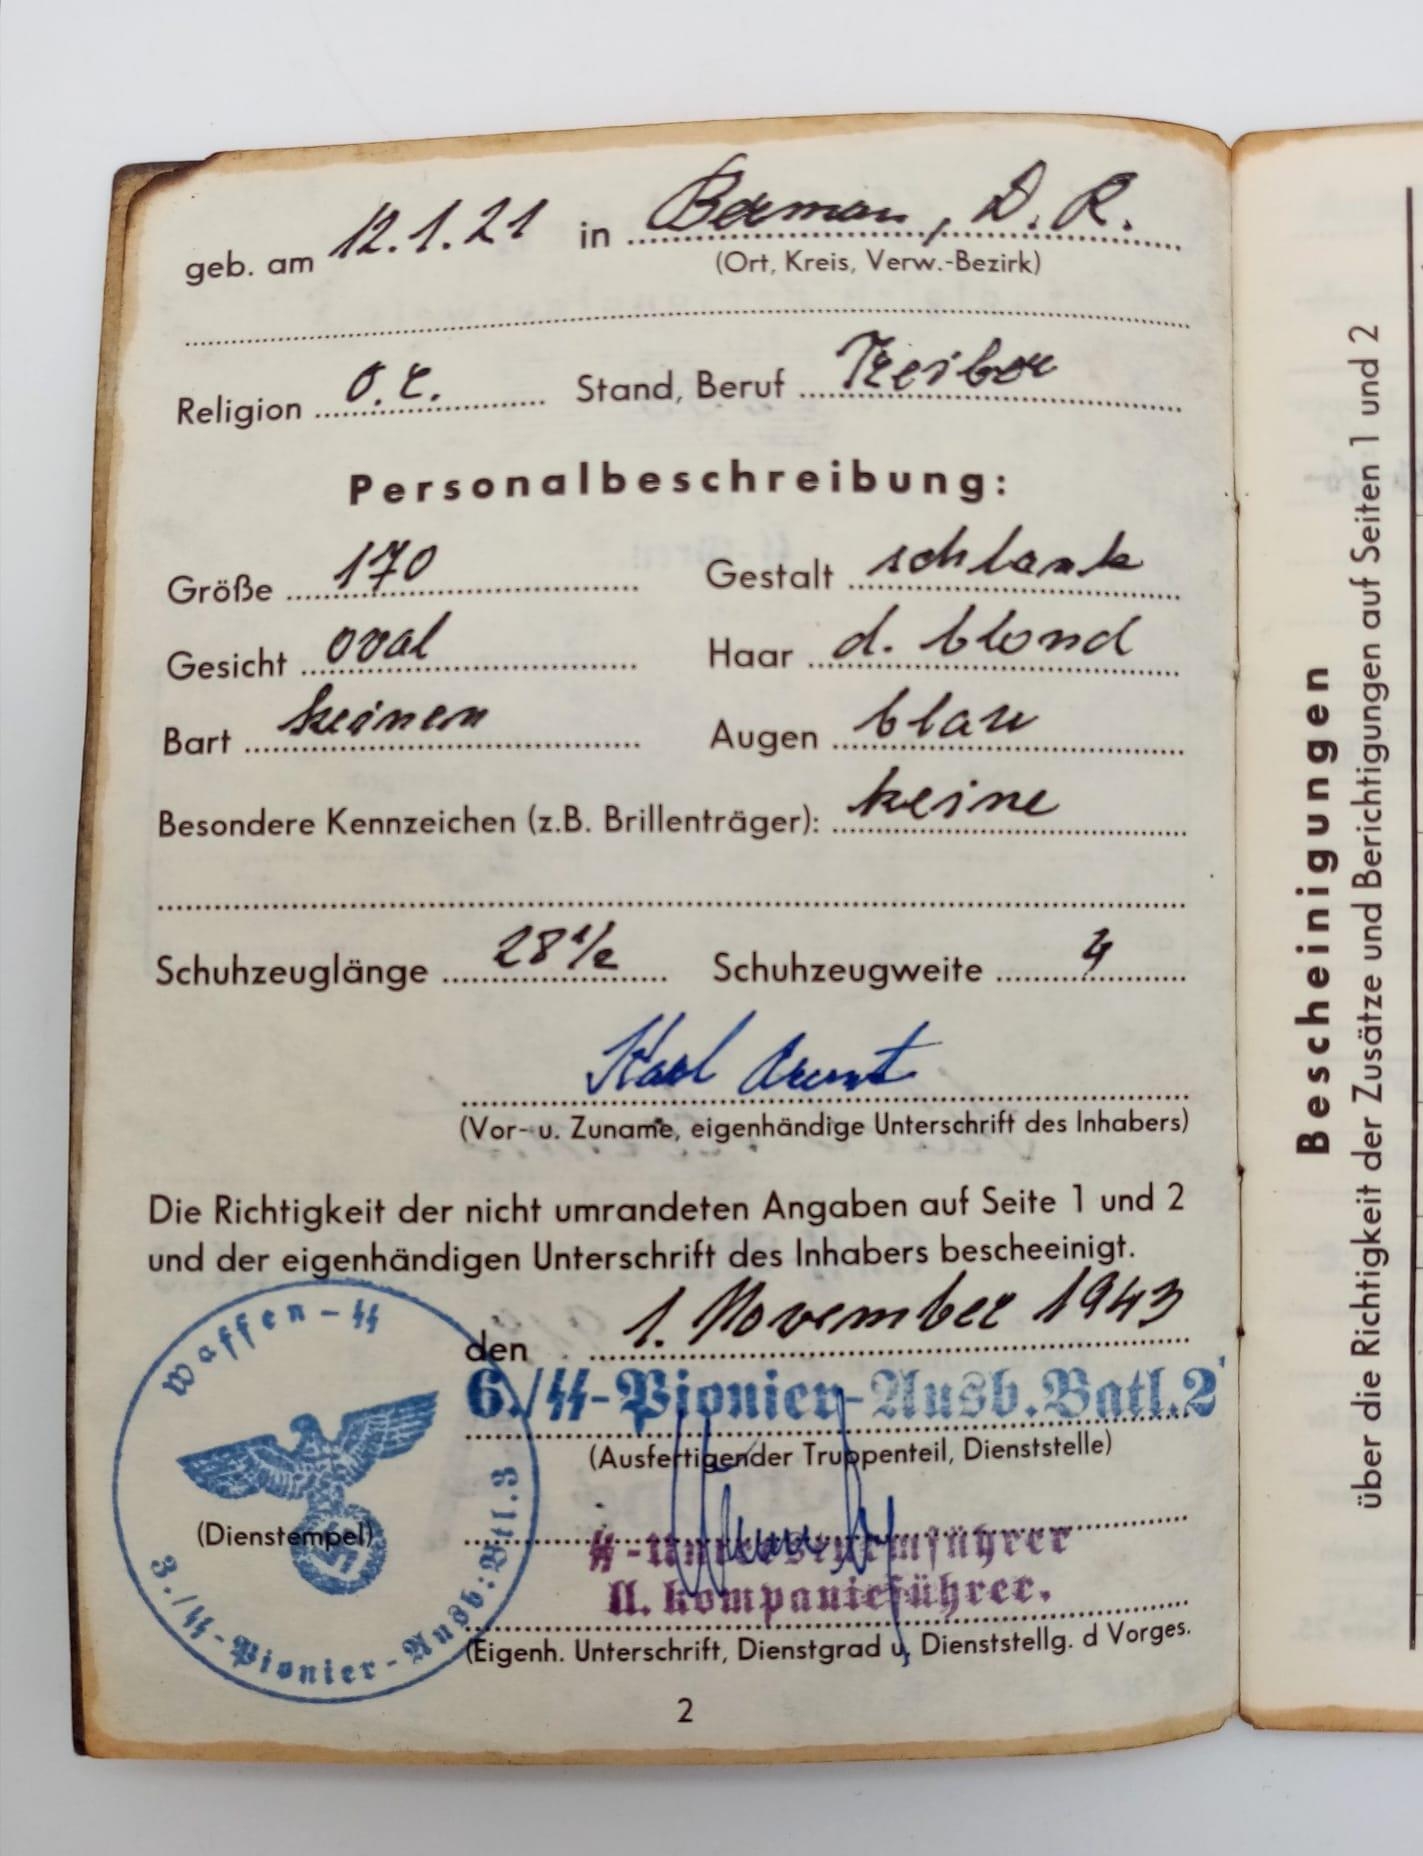 geb. am 12.1.21 in , D. R.
(Ort, Kreis, Verw.-Bezirk)
Religion Stand, Beruf
Personalbeschreibung:
Größe 170 Gestalt schlank
Gesicht oval Haar d. blond
Bart keinen Augen blau
Besondere Kennzeichen (z.B. Brillenträger): keine
Schuhzeuglänge 28 1/2 Schuhzeugweite 4
Karl
(Vor- u. Zuname, eigenhändige Unterschrift des Inhabers)
Die Richtigkeit der nicht umrandeten Angaben auf Seite 1 und 2
und der eigenhändigen Unterschrift des Inhabers bescheeinigt.
den 1. November 1943
6./SS-Pionier-Ausb.Batl.2
(Ausfertigender Truppenteil, Dienststelle)
SS-Untersturmführer
u. Kompanieführer.
(Eigenh. Unterschrift, Dienstgrad u. Dienststellg. d Vorges.
Waffen-SS
(Dienstempel)
3./SS-Pionier-Ausb.Btl.3
2
Bescheinigungen
über die Richtigkeit der Zusätze und Berichtigungen auf Seiten 1 und 2